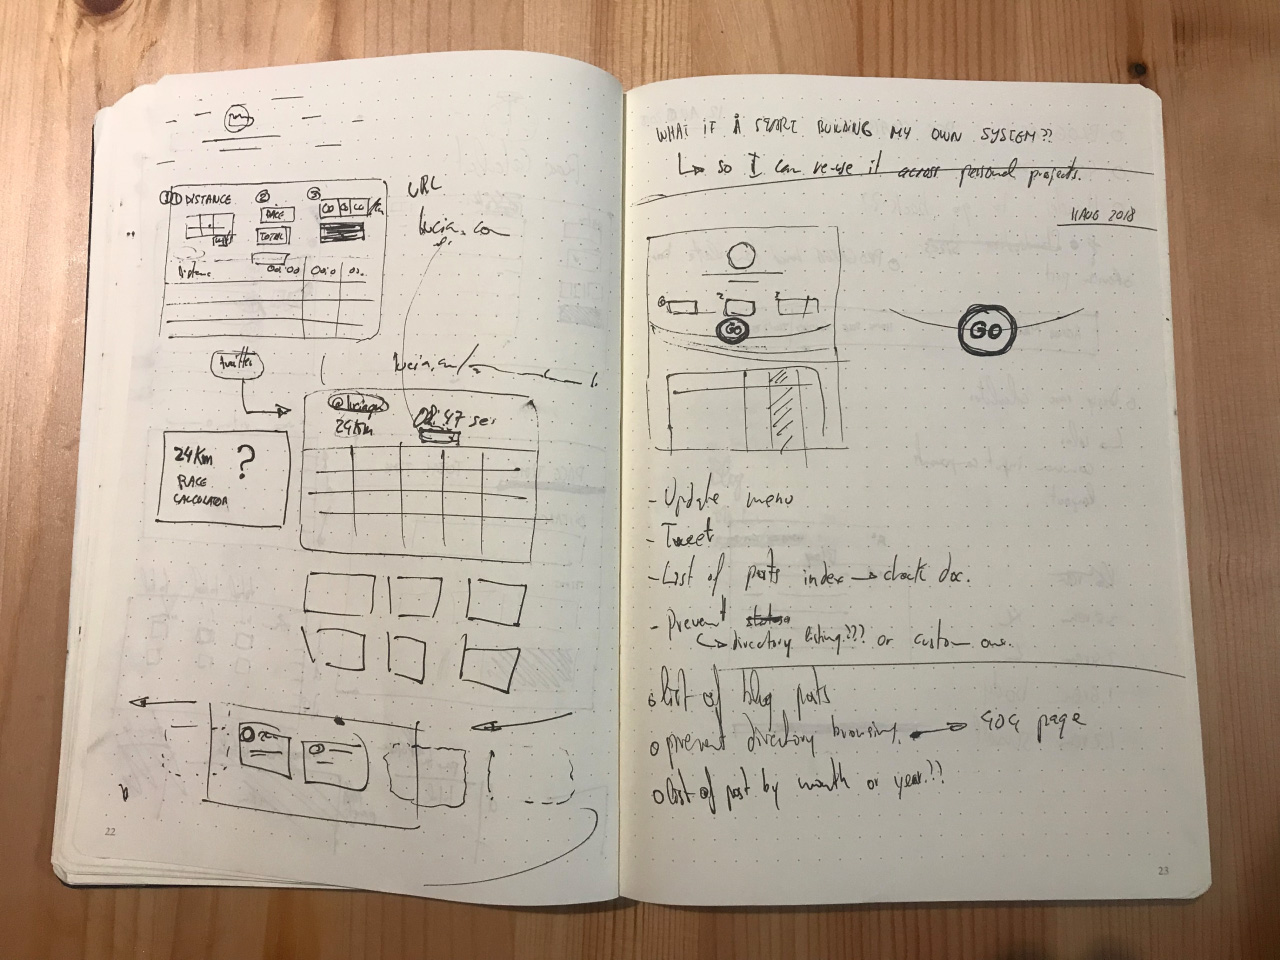 ① DISTANCE
②
③
PACE
TOTAL
Distance 00:00 00:0 00.
URL
lucia.com
twitter
24Km
02:47
24Km ?
RACE
CALCULATOR
22
WHAT IF I START BUILDING MY OWN SYSTEM??
↳ so I can re-use it across personal projects.
11 AUG 2018
2
GO
GO
- Update menu
- Tweet
- List of posts index → check doc.
- Prevent
↳ directory listing??? or custom one.
o list of blog posts
o prevent directory browsing. → 404 page
o list of post by month or year??
23